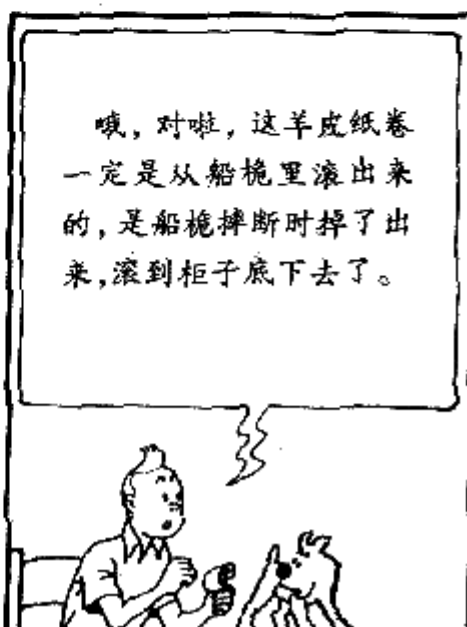 哦，对啦，这羊皮纸卷
一定是从船桅里滚出来
的，是船桅摔断时掉了出
来，滚到柜子底下去了。